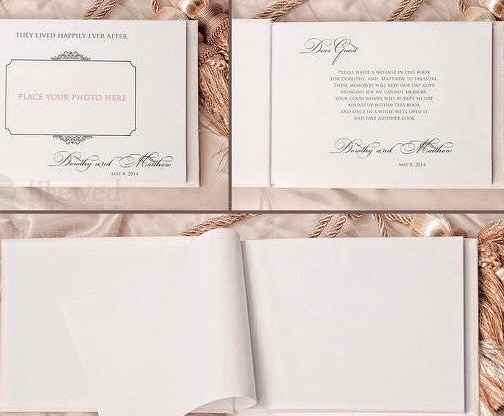 THEY LIVED HAPPILY EVER AFTER
PLACE YOUR PHOTO HERE
Dorothy and Matthew
MAY 8, 2014
Dear Guest
PLEASE WRITE A MESSAGE IN THIS BOOK
FOR DOROTHY AND MATTHEW TO TREASURE
THESE MEMORIES WILL KEEP OUR DAY ALIVE
BRINGING JOY WE CANNOT MEASURE
YOUR GOOD WISHES WILL BE KEPT SECURE
BOUND UP WITHIN THIS BOOK
AND ONCE IN A WHILE WE'LL OPEN IT
AND TAKE ANOTHER LOOK
Dorothy and Matthew
MAY 8, 2014